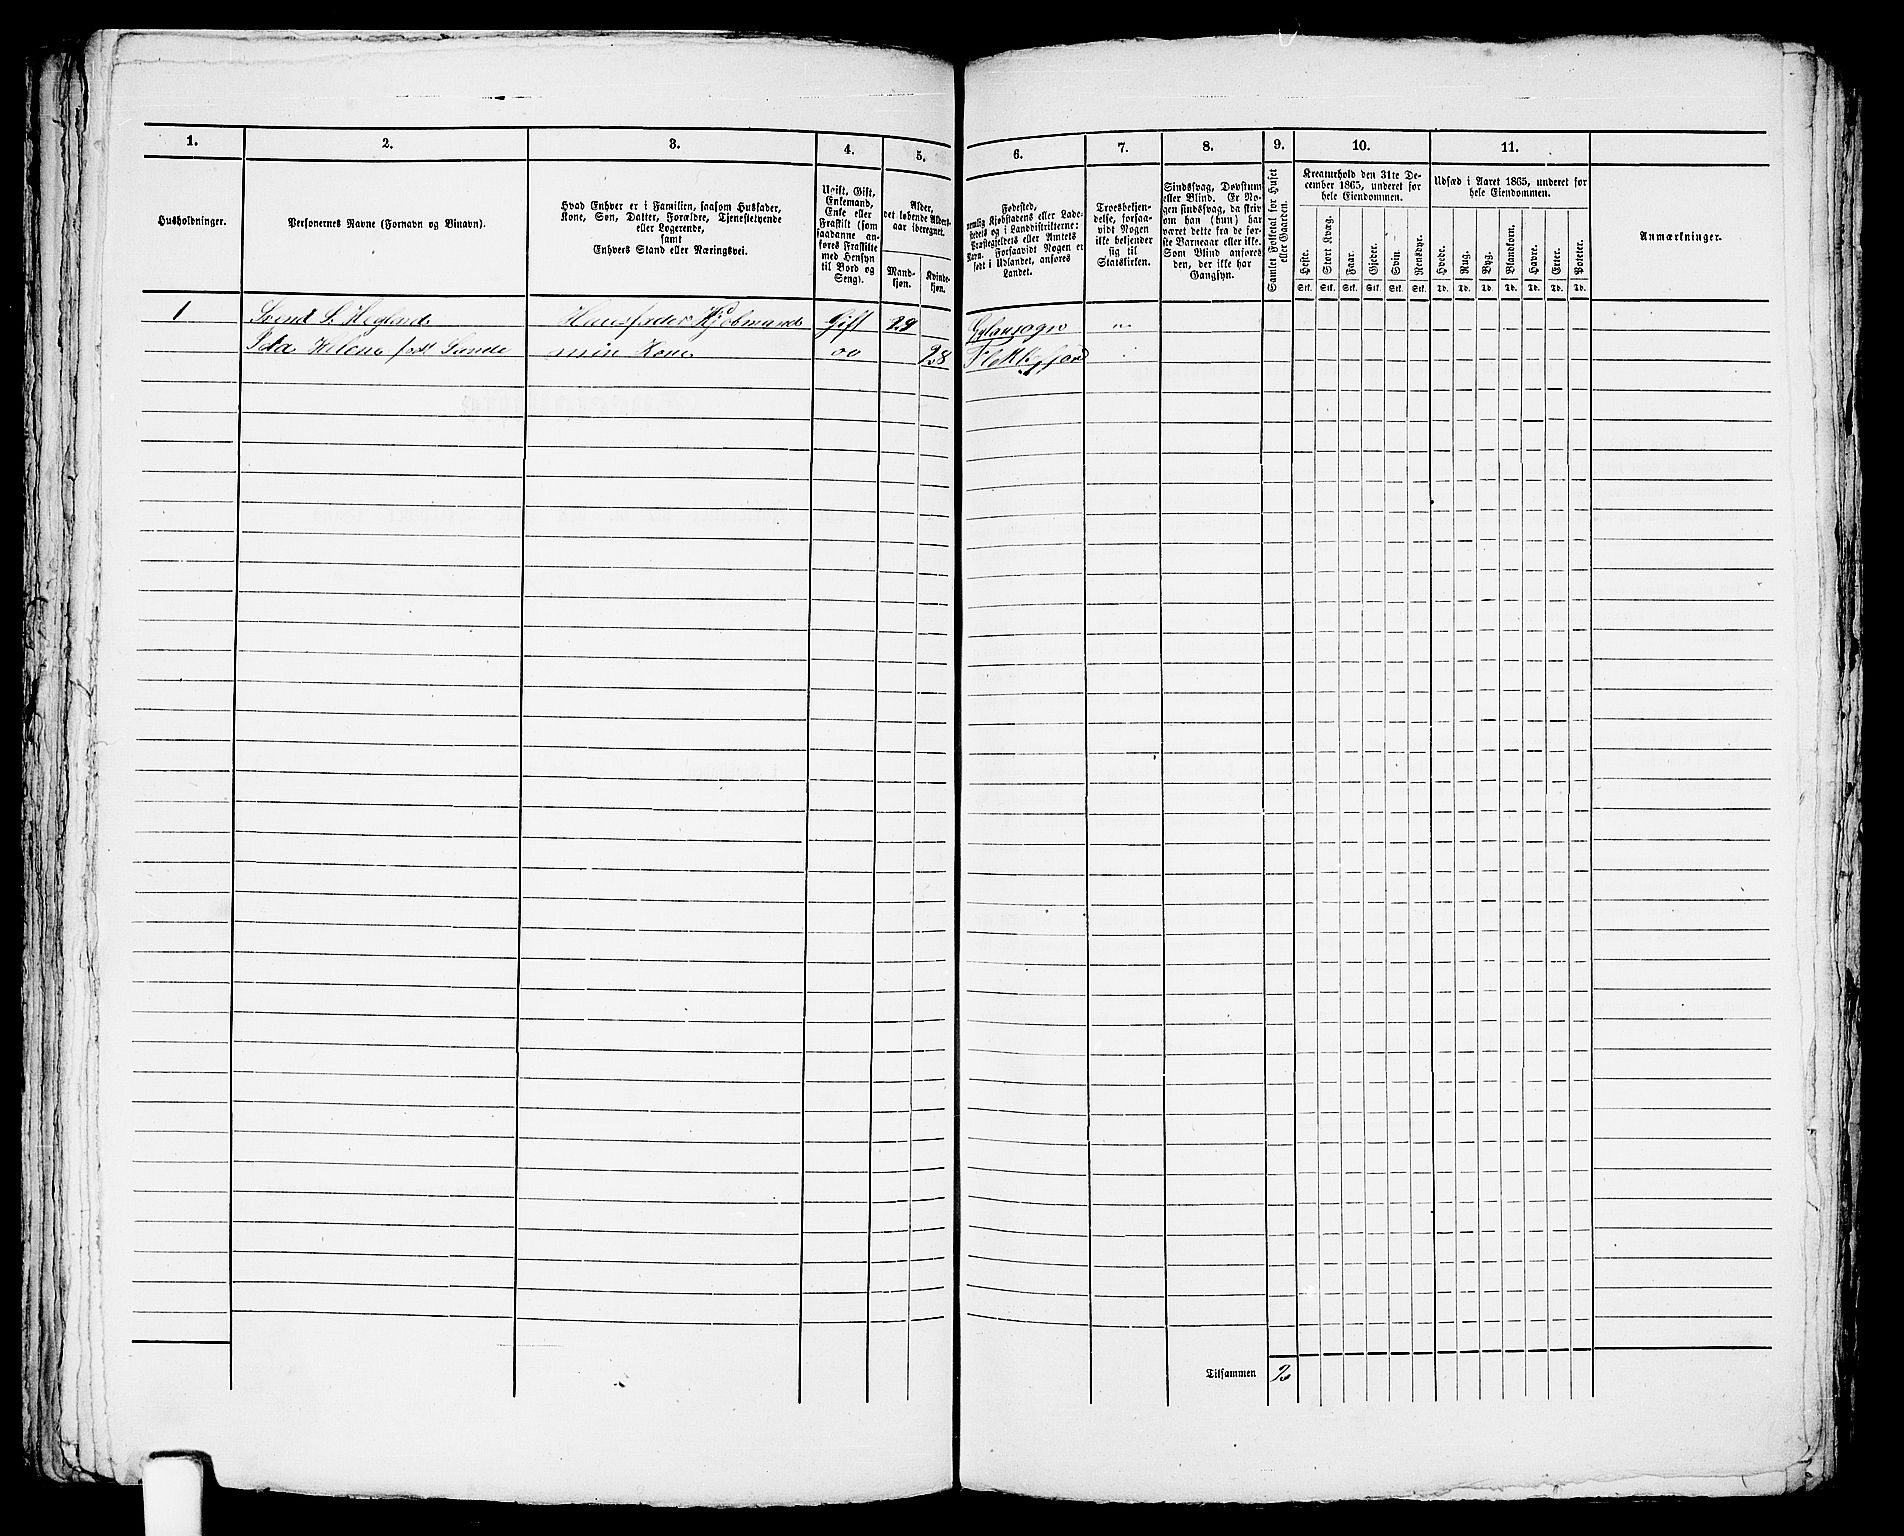 1.
2.
3.
4.
5.
6.
7.
8.
9.
10.
11.
Husholdninger.
Personernes Navne (Fornavn og Binavn).
Hvad Enhver er i Familien, saasom Husfader,
Kone, Søn, Datter, Forældre, Tjenestetyende
eller Logerende,
samt
Enhvers Stand eller Næringsvei.
Ugift, Gift,
Enkemand,
Enke eller
Fraskilt (som
saadanne an-
føres Fraskilte
med Hensyn
til Bord og
Seng).
Alder,
det løbende Alders-
aar iberegnet.
Mand-
kjøn.
Kvinde-
kjøn.
Fødested,
nemlig Kjøbstadens eller Lade-
stedets og i Landdistrikterne:
Præstegjeldets eller Amtets
Navn. Forsaavidt Nogen er
født i Udlandet, anføres
Landet.
Troesbekjen-
delse, forsaa-
vidt Nogen
ikke bekjender
sig til
Statskirken.
Sindssvag, Døvstum
eller Blind. Er No-
gen sindssvag, da skriv
om han (hun) har
været dette fra de før-
ste Barneaar eller ikke.
Som Blind anføres
den, der ikke har
Gangsyn.
Samlet Folketal for Huset
eller Gaarden.
Kreaturhold den 31te De-
cember 1865, underet for
hele Eiendommen.
Heste.
Stort Kvæg.
Faar.
Gjeder.
Svin.
Rensdyr.
Stk. Stk. Stk. Stk. Stk. Stk.
Udsæd i Aaret 1865, underet for
hele Eiendommen.
Hvede.
Rug.
Byg.
Blandkorn.
Havre.
Erter.
Poteter.
Td. Td. Td. Td. Td. Td. Td.
Anmærkninger.
1 Svend S. Hegland Huusfader Kjøbmand Gift 29
Ida Helene født Sunde min Kone do 28 Flekkefjord
Tilsammen 2